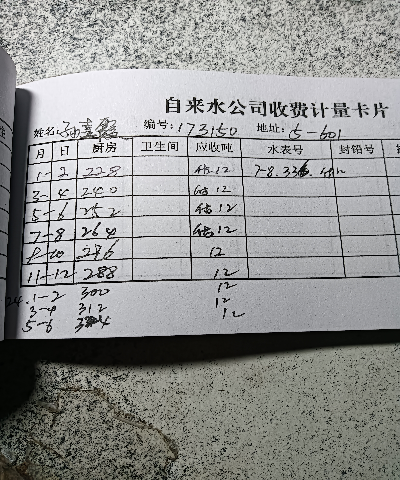 自来水公司收费计量卡片
姓名: 编号:173150 地址:5-601
月 日 厨房 卫生间 应收吨 水表号 封铅号
1-2 228 估12 7-8.
3-4 240 估12
5-6 252 估12
7-8 264 估12
276 12
11-12 288 12
24.1-2 300 12
3-4 312 12
5-6 12